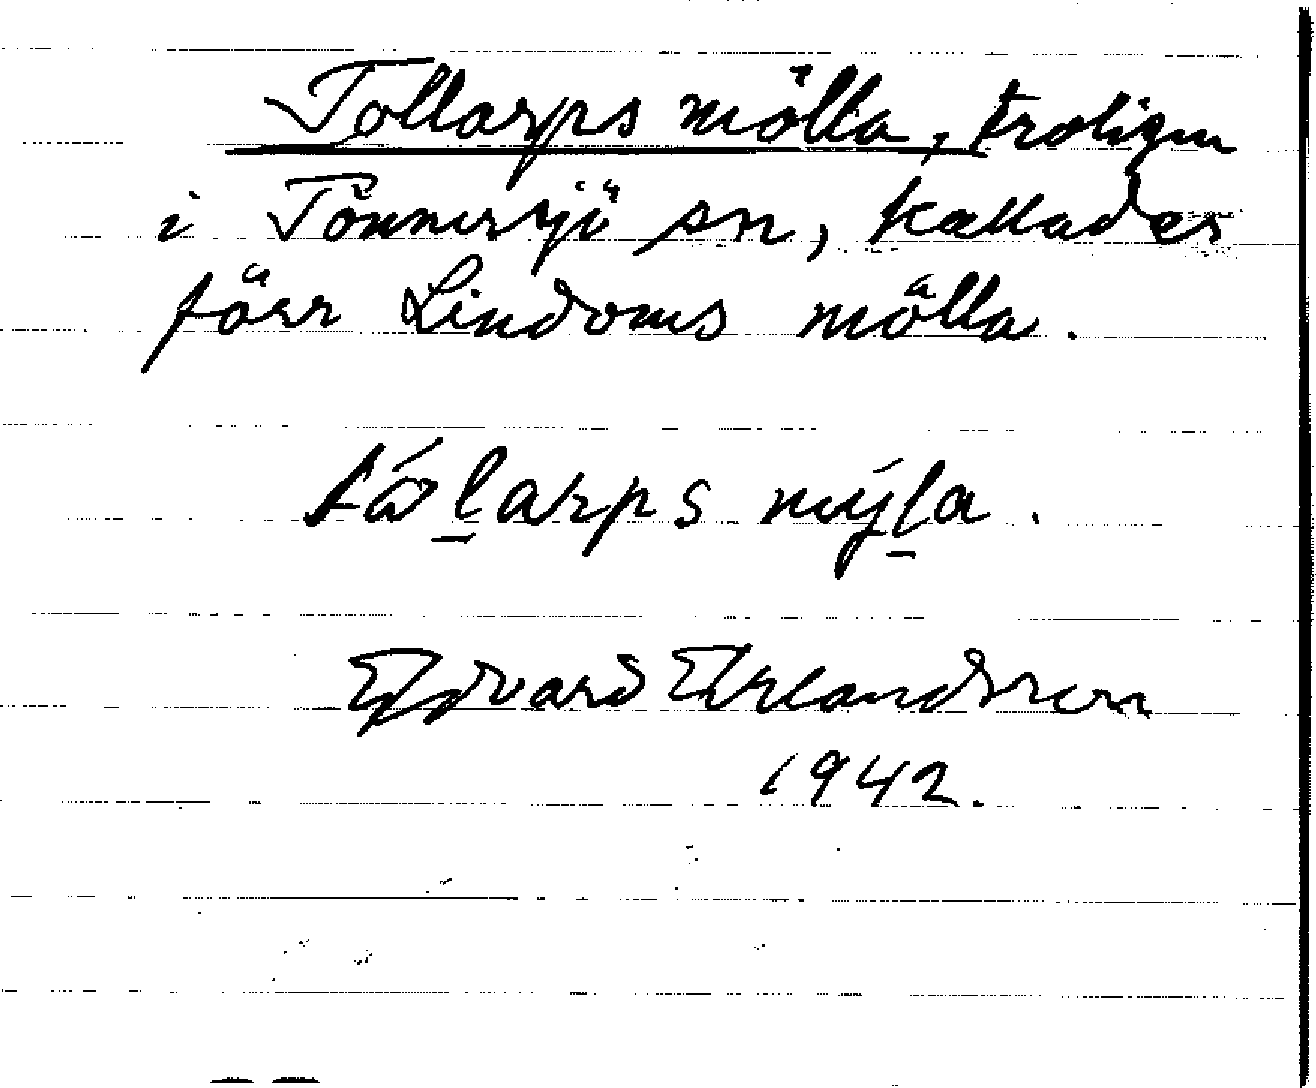 Tollarps mölla, troligen
i Tönnersjö sn, kallades
förr Lindoms mölla.
larps mýl̲a.
Edvard Erlandsson
1942.